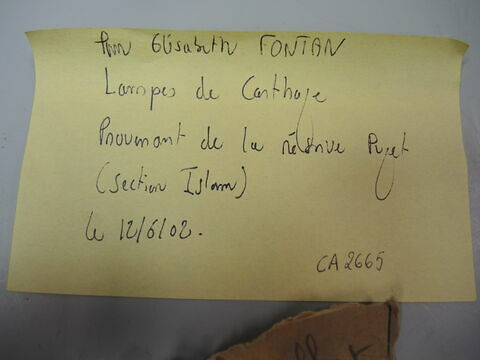 Pour Elisabeth FONTAN
Lampes de Carthage
Provenant de la réserve Puget
(section Islam)
le 12/6/02.
CA 2665